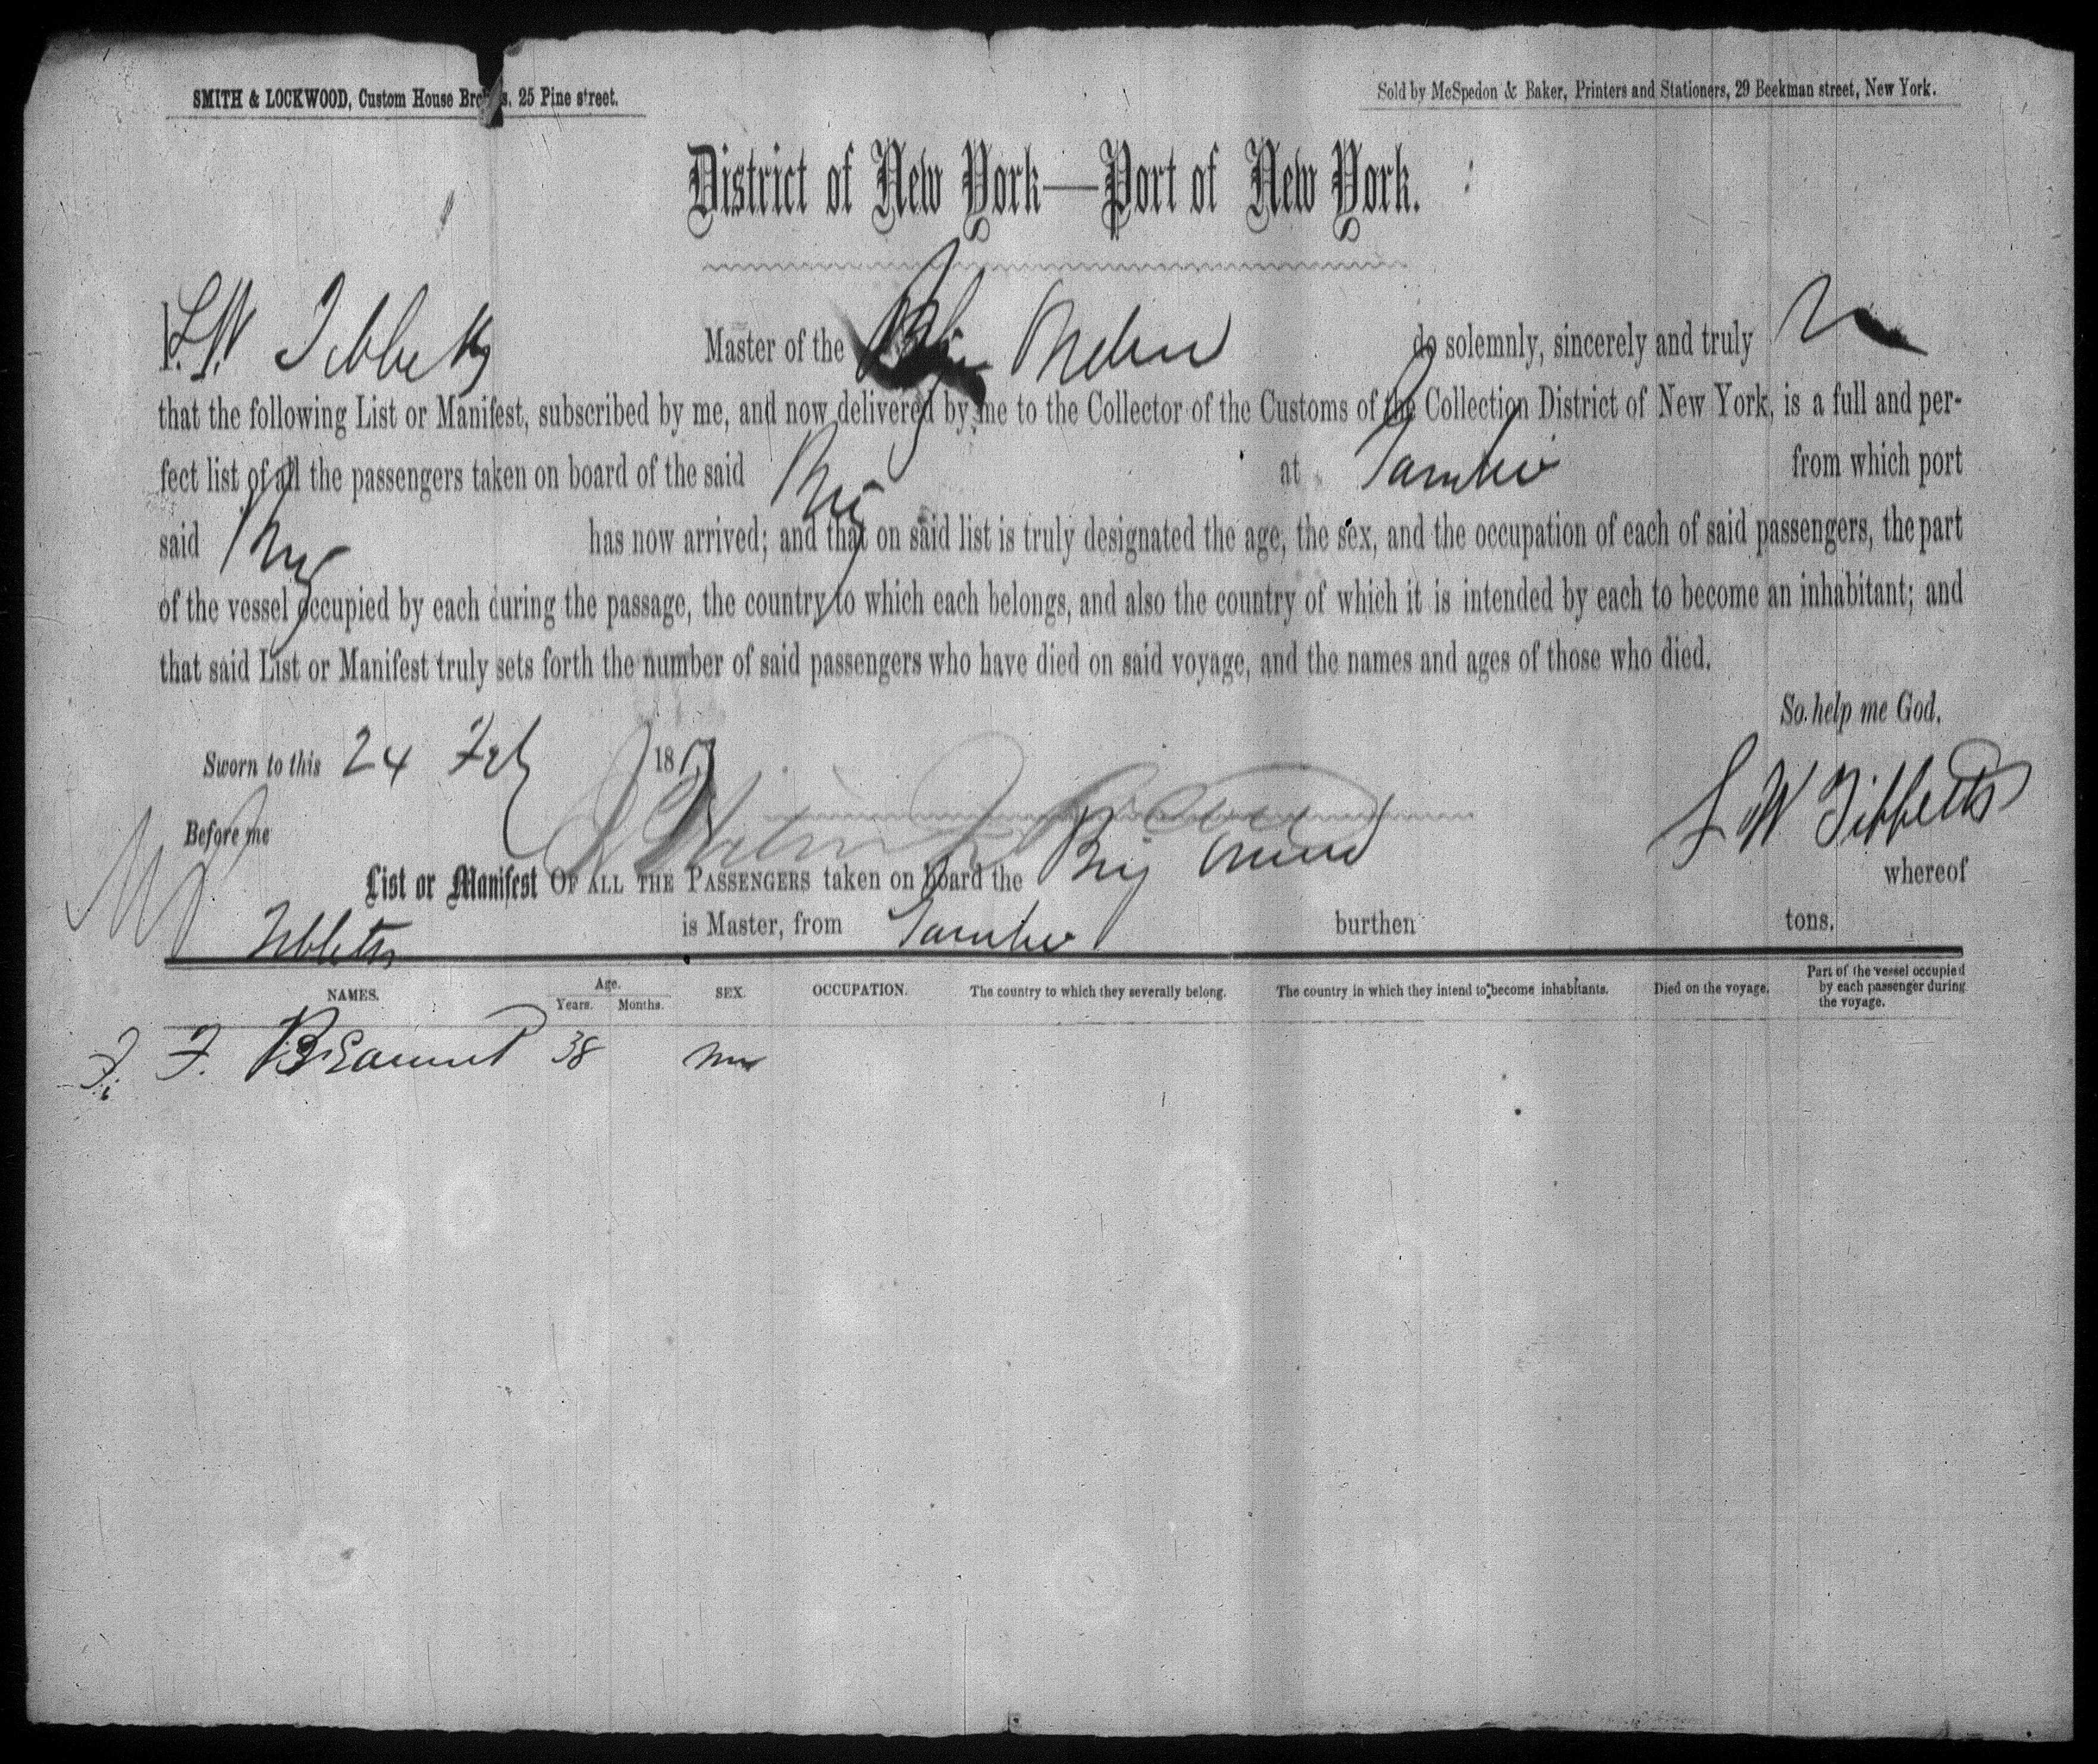 SMITH & LOCKWOOD, Custom House Brokers, 25 Pine street.
Sold by McSpedon & Baker, Printers and Stationers, 29 Beekman street, New York.
District of New York—Port of New York.
I, L. W. Tibbetts Master of the Brig do solemnly, sincerely and truly
that the following List or Manifest, subscribed by me, and now delivered by me to the Collector of the Customs of the Collection District of New York, is a full and per-
fect list of all the passengers taken on board of the said Brig at from which port
said Brig has now arrived; and that on said list is truly designated the age, the sex, and the occupation of each of said passengers, the part
of the vessel occupied by each during the passage, the country to which each belongs, and also the country of which it is intended by each to become an inhabitant; and
that said List or Manifest truly sets forth the number of said passengers who have died on said voyage, and the names and ages of those who died.
So help me God.
Sworn to this 24 Feb 18
L W Tibbetts
Before me
List or Manifest OF ALL THE PASSENGERS taken on board the Brig whereof
Tibbetts is Master, from burthen tons.
NAMES. Age. Years. Months. SEX. OCCUPATION. The country to which they severally belong. The country in which they intend to become inhabitants. Died on the voyage. Part of the vessel occupied by each passenger during the voyage.
F. 38 m